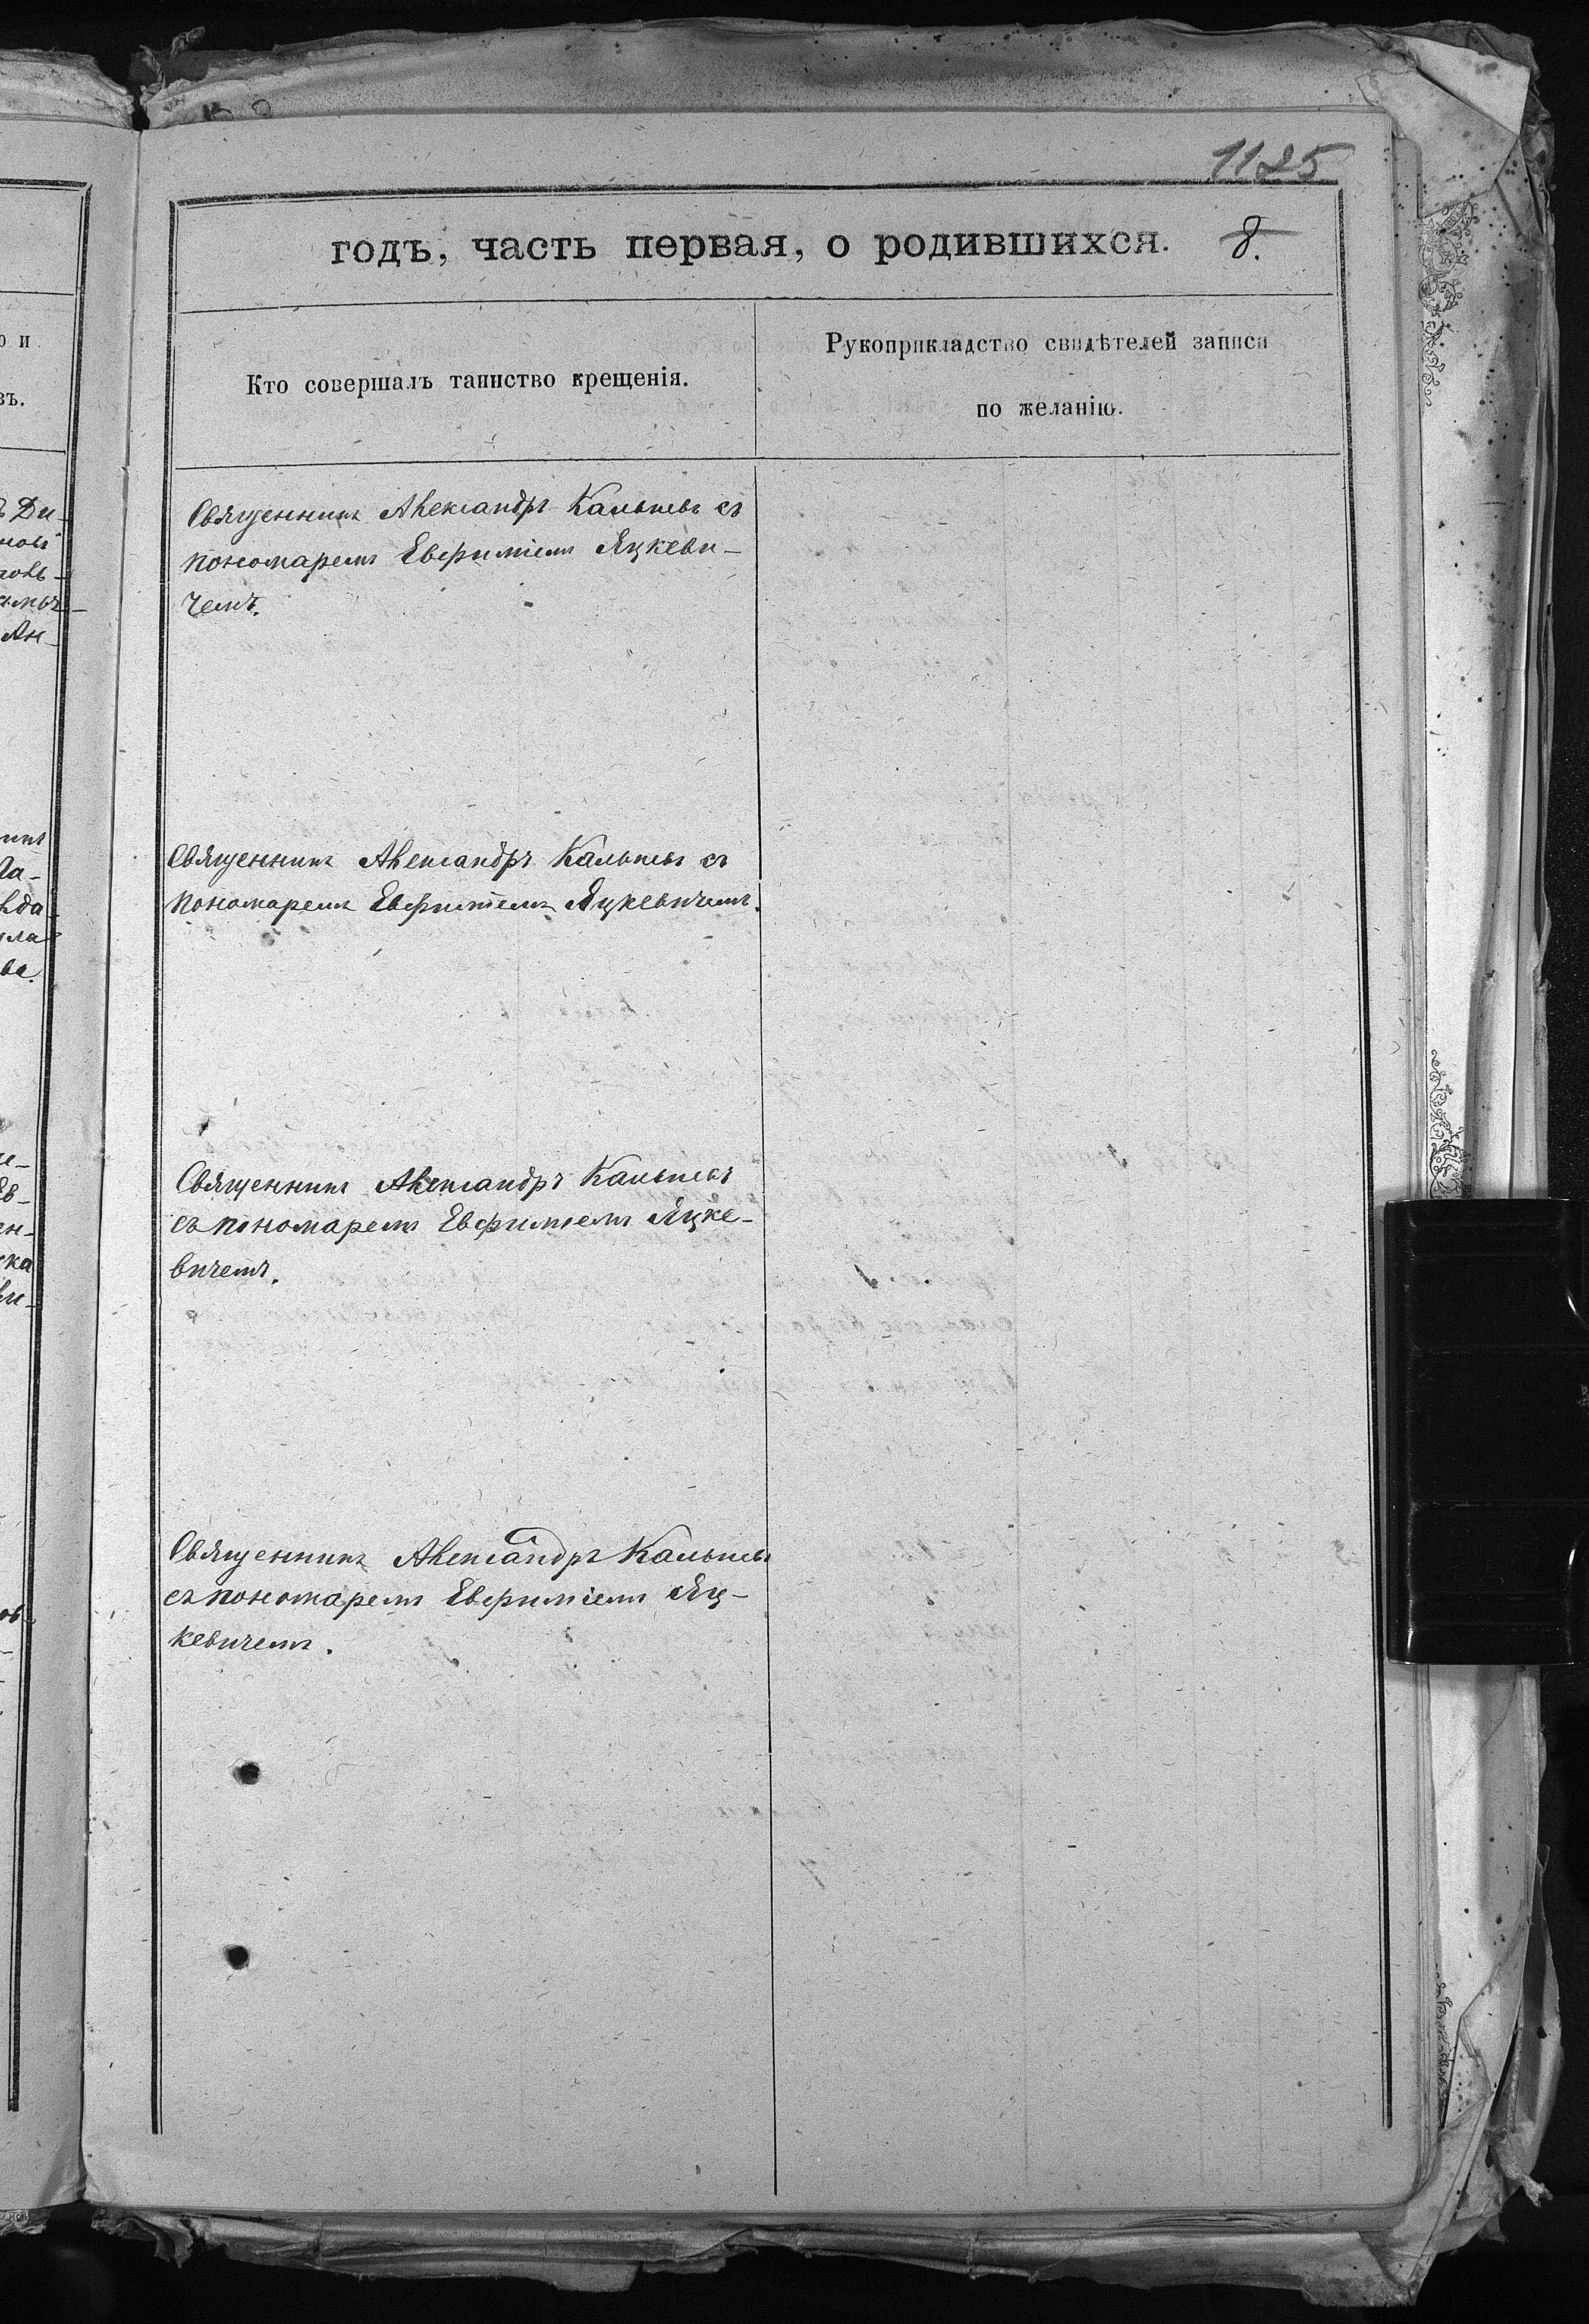 1125
годъ, часть первая, о родившихся. 8.
Кто совершалъ таинство крещенія.
Рукоприкладство свидѣтелей записи
по желанію.
Священникъ Александръ съ
пономаремъ Евфиміемъ Яцкеви-
чемъ.
Священникъ Александръ съ
пономаремъ Евфиміемъ Яцкевичемъ.
Священникъ Александръ
съ пономаремъ Евфиміемъ Яцке-
вичемъ.
Священникъ Александръ
съ пономаремъ Евфиміемъ Яц-
кевичемъ.